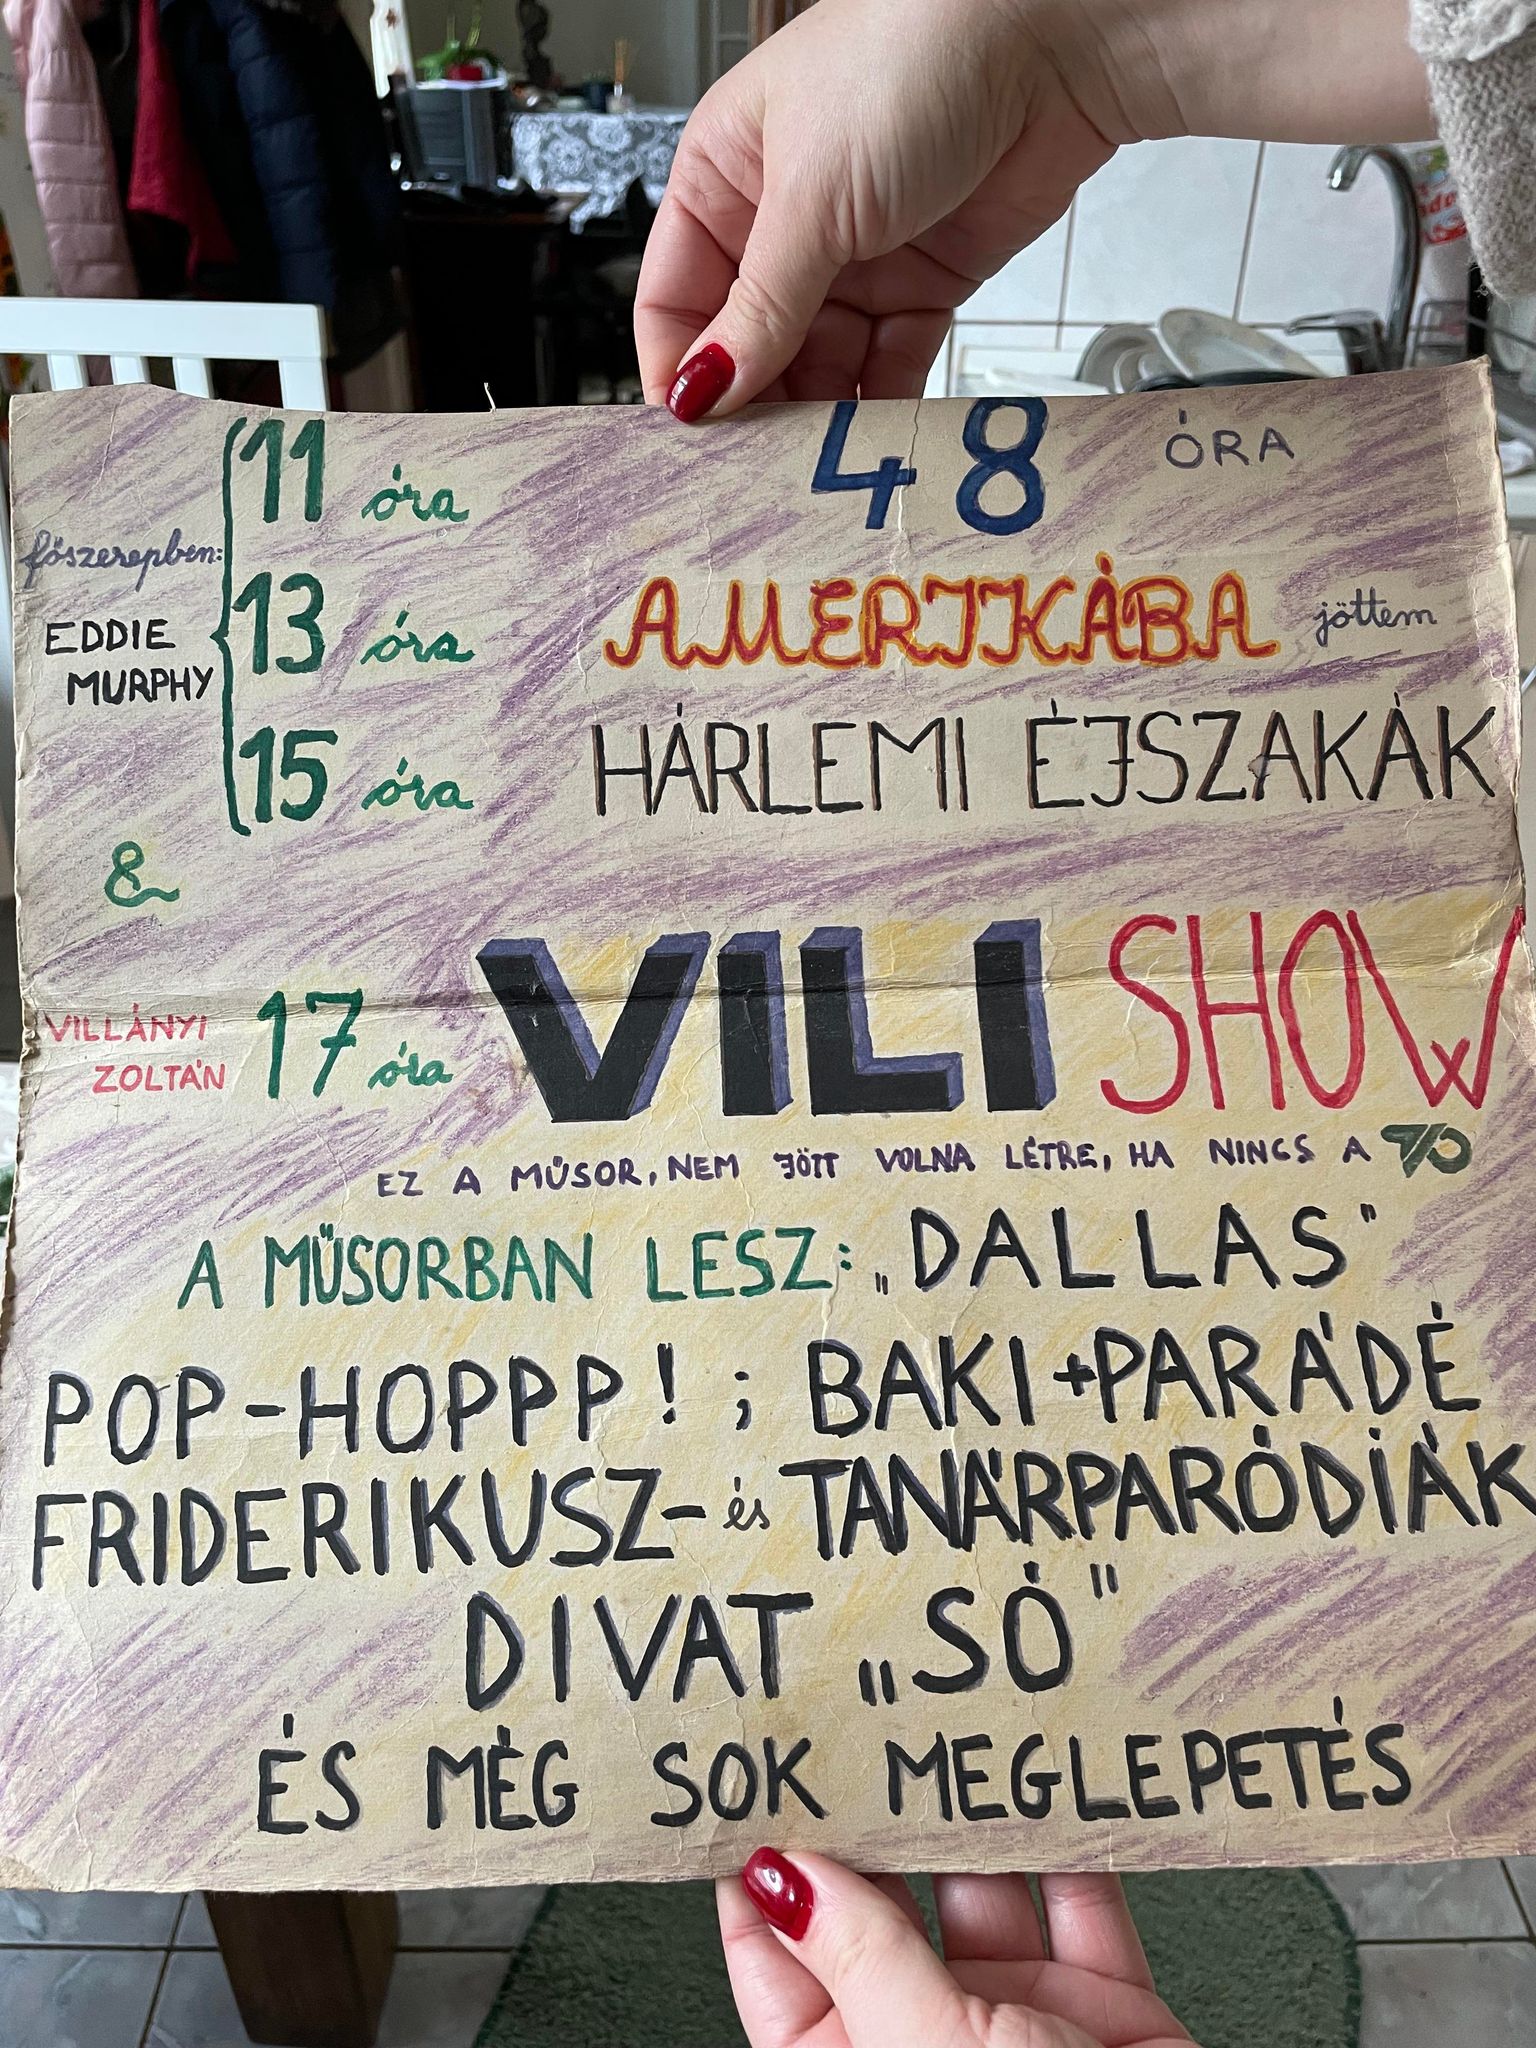 11 óra 48 ÓRA
főszerepben:
EDDIE MURPHY
13 óra AMERIKÁBA jöttem
15 óra HÁRLEMI ÉJSZAKÁK
&
VILLÁNYI ZOLTÁN 17 óra VILI SHOW
EZ A MŰSOR, NEM JÖTT VOLNA LÉTRE, HA NINCS A
A MŰSORBAN LESZ: „DALLAS"
POP-HOPPP! ; BAKI+PARÁDÉ
FRIDERIKUSZ- és TANÁRPARÓDIÁK
DIVAT „SÓ"
ÉS MÉG SOK MEGLEPETÉS